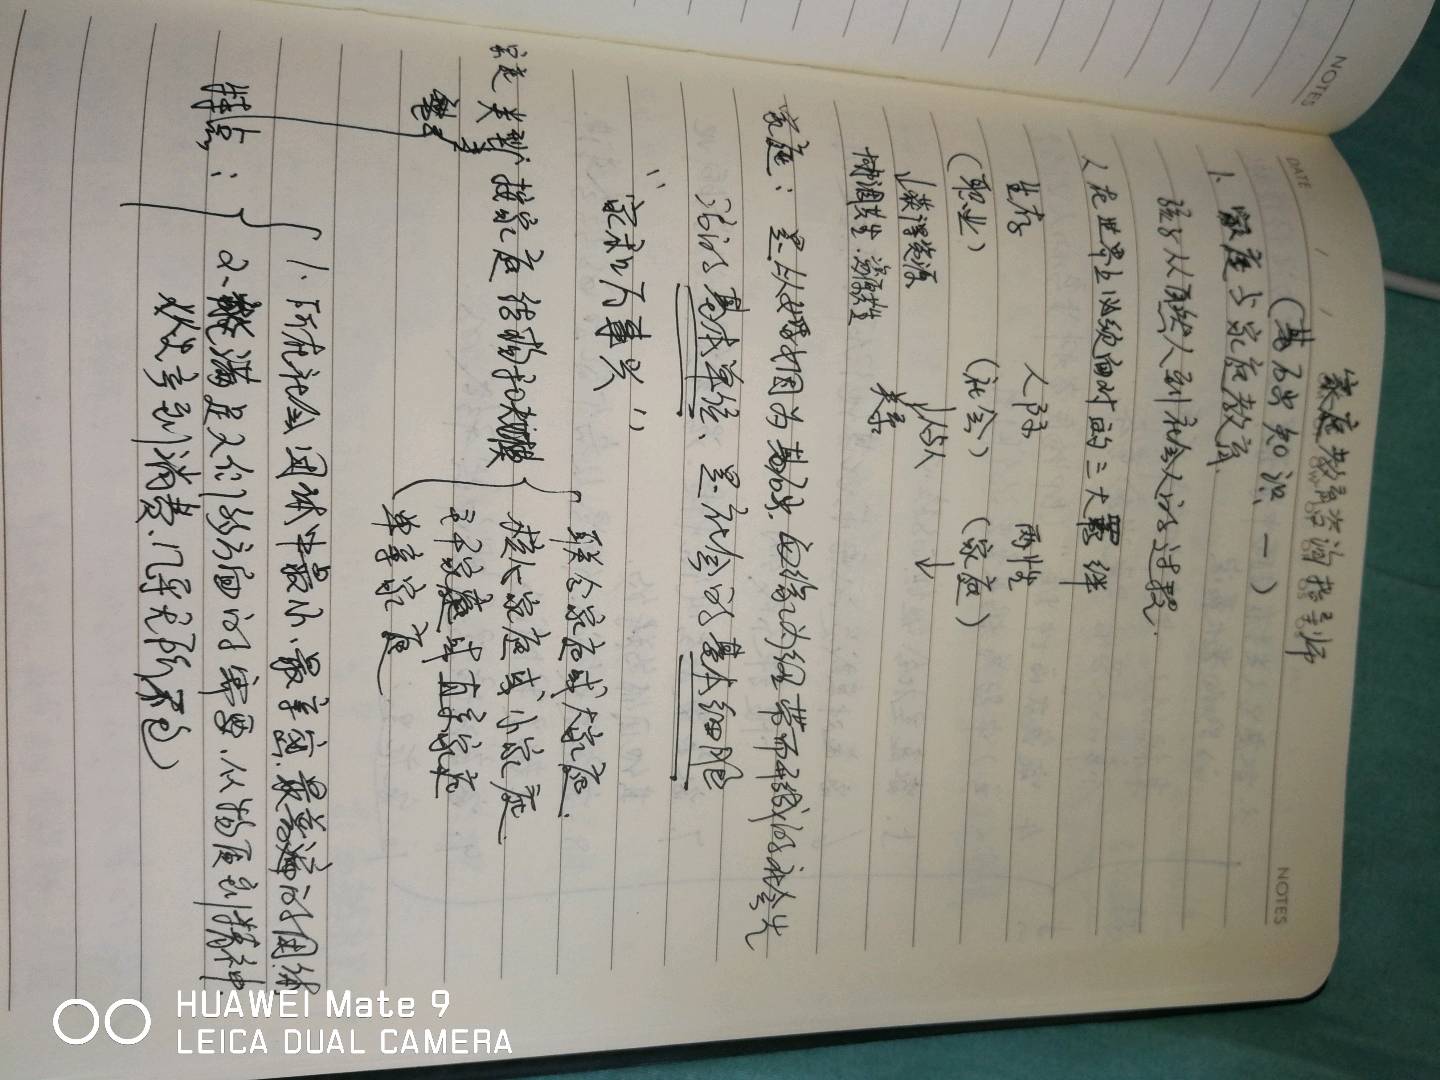 NOTES
DATE / /
NOTES
家庭教育咨询指导师
(基础知识一)
1. 家庭与家庭教育.
孩子从自然人到社会人的过程.
人在世界上必须面对的三大 
生存 人际 两性
(职业) (社会) (家庭)
↓获得资源 ↓ 他人 ↓
协调共生.资源共生 关系
家庭: 是以婚姻为基础.血缘为纽带而形成的社会生
活的基本单位、是社会的基本细胞
“家和万事兴”
家庭类型: 按家庭结构和规模
联合家庭或大家庭.
核心家庭或小家庭.
主干家庭或直系家庭
单亲家庭
特点:
1. 所有社会团体中最小.最亲密.最普遍的团体
2. 能满足人们多方面的需要.从物质到精神
从生产到消费.几乎无所不包)
HUAWEI Mate 9
LEICA DUAL CAMERA